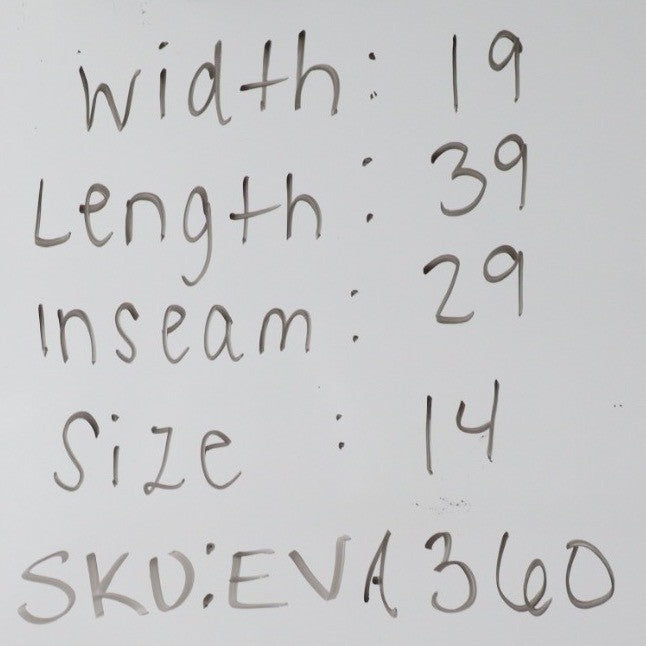 Width: 19
Length: 39
Inseam: 29
Size : 14
SKU:EVA360